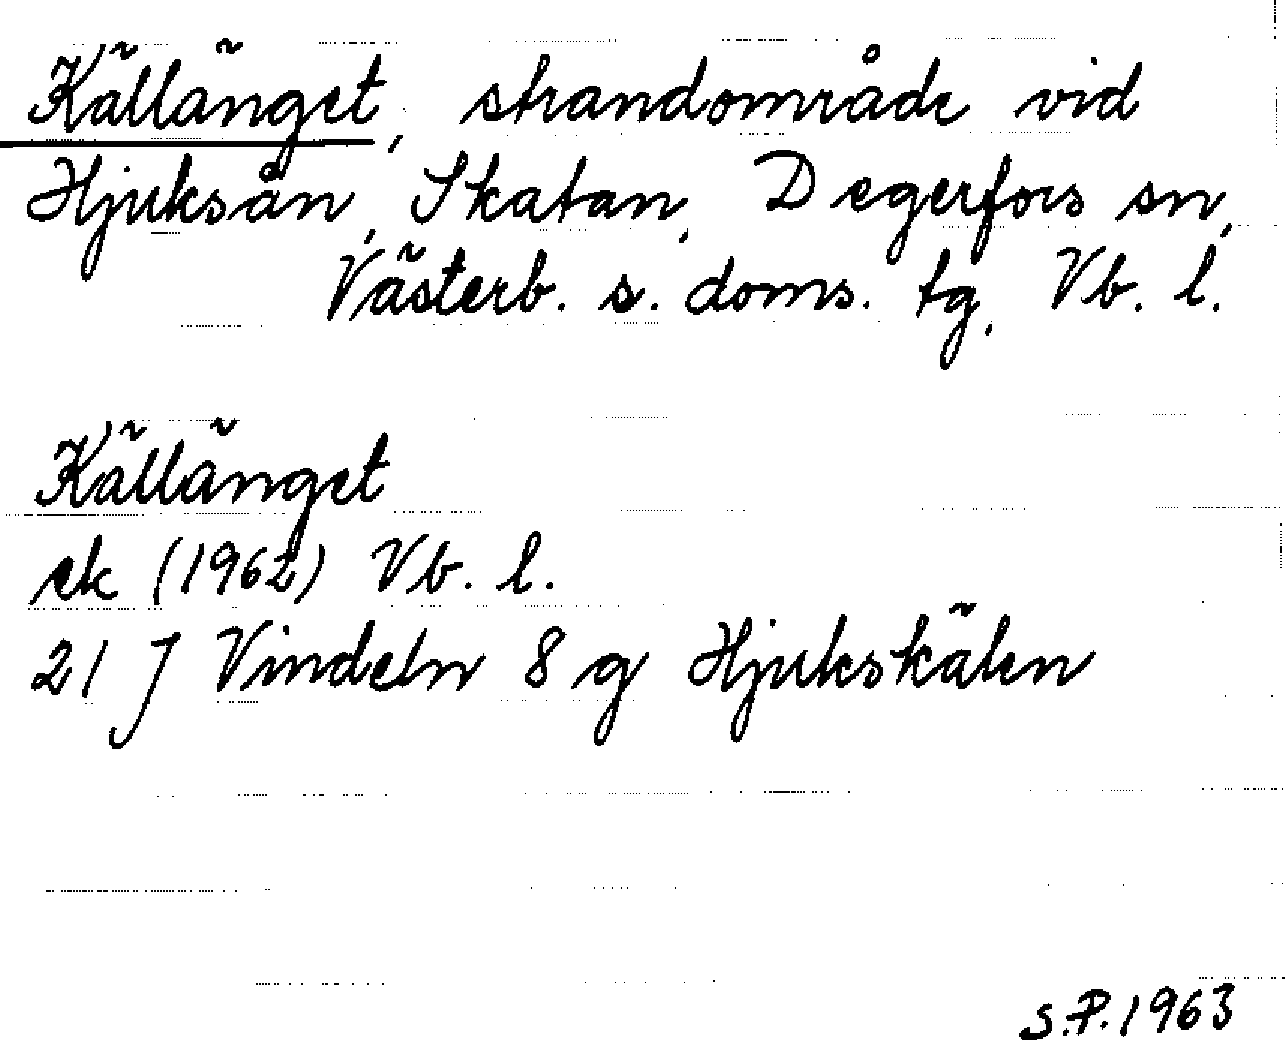 Källänget, strandområde vid
Hjuksån, Skatan, Degerfors sn,
Västerb. s. doms. tg, Vb. l.
Källänget
ek (1962) Vb. l.
21 J Vindeln 8 g Hjukskälen
S.P. 1963